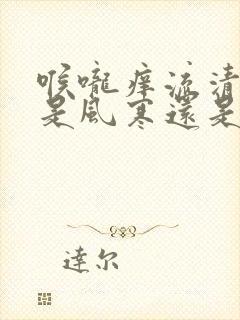 喉嚨痒流清
是風寒還是
達尔